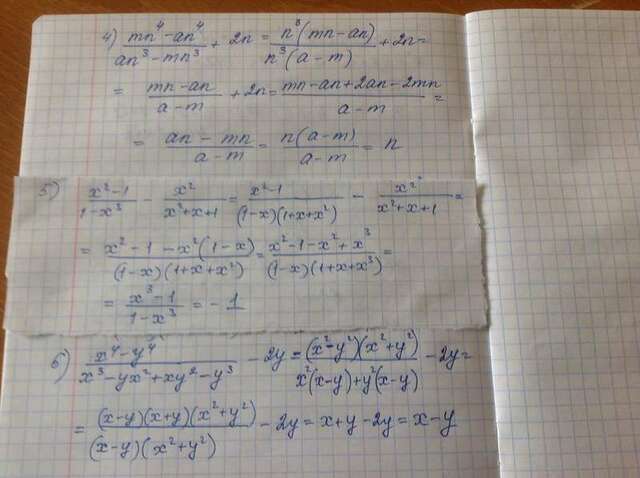 4) (mn⁴ - an⁴)/(an³ - mn³) + 2n = n³(mn - an)/n³(a - m) + 2n =
= (mn - an)/(a - m) + 2n = (mn - an + 2an - 2mn)/(a - m) =
= (an - mn)/(a - m) = n(a - m)/(a - m) = n
5) (x² - 1)/(1 - x³) x²/(x² + x + 1) = (x² - 1)/((1 - x)(1 + x + x²)) - x²/(x² + x + 1) =
= (x² - 1 - x²(1 - x))/((1 - x)(1 + x + x²)) = (x² - 1 - x² + x³)/((1 - x)(1 + x + x³)) =
= (x³ - 1)/(1 - x³) = - 1
6) (x⁴ - y⁴)/(x³ - yx² + xy² - y³) - 2y = (x² - y²)(x² + y²)/(x²(x - y) + y²(x - y)) - 2y =
= (x - y)(x + y)(x² + y²)/((x - y)(x² + y²)) - 2y = x + y - 2y = x - y